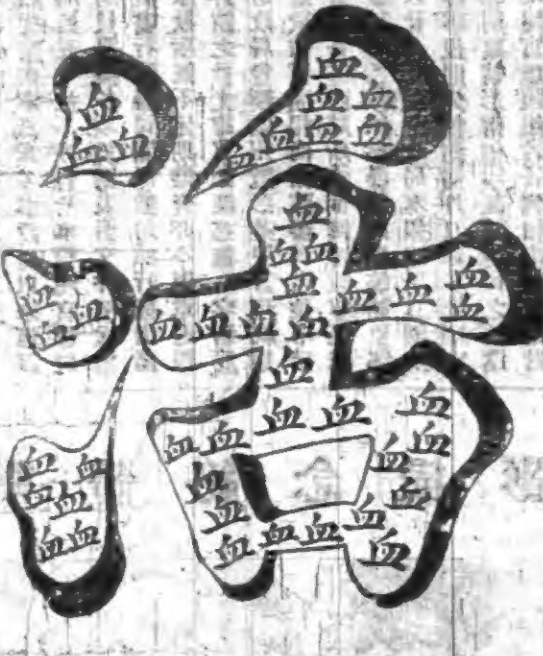 活
血
血血
血
血血
血血
血血
血血
血
血血
血血血血
血
血血
血
血血血血血血血
血血
血
血血血
血血血
血血
血血
血血
血血血血血